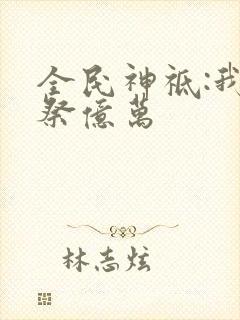 全民神祗:我
祭億萬
林志炫